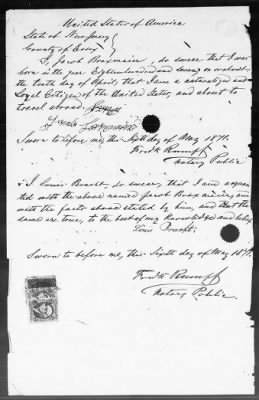 United States of America
State of New Jersey
County of Essex
I, Jacob do swear that I was
born in the year Eighteen hundred and on or about
the tenth day of April; that I am a naturalized and
Loyal Citizen of the United States, and about to
travel abroad.
Sworn to before me, this Sixth day of May 1871.
Fredk Rumpf
Notary Public
I Louis do swear, that I am acquain
ted with the above named Jacob and
with the facts above stated by him, and that the
same are true, to the best of my Knowledge and belief.
Louis
Sworn to before me, this Sixth day of May 1871.
Fredk Rumpf
Notary Public